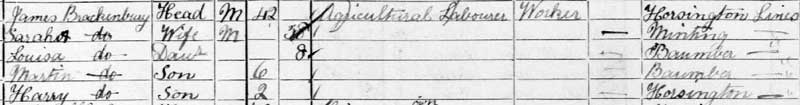 James Brackenbury Head M 42 Agricultural Labourer Worker Horsington Lincs
Sarah do Wife M 38 — Minting —"
Louisa do Daur 8 — Baumber —"
Martin do Son 6 Baumber —"
Harry do Son 2 — Horsington —"